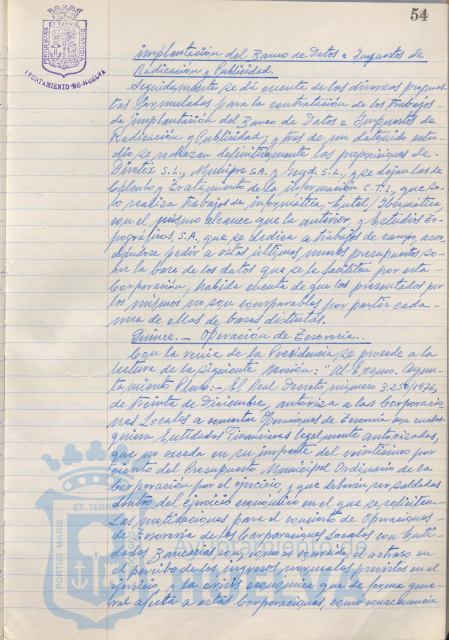 54
AYUNTAMIENTO DE HUELVA
implantación del Banco de Datos e Impuestos de
Radicación y Publicidad.
Seguidamente se dá cuenta de los diversos propues-
tas formuladas para la contratación de los trabajos
de implantación del Banco de Datos e Impuestos de
Radicación y Publicidad; y tras de un detenido estu-
dio se rechazan definitivamente las proposiciones de
S.L., S.A. y S.L., y se dejan las de
Cálculo y Tratamiento de la información C.T.I., que so-
lo realiza trabajos de informática, Entel/Ibermática
con el mismo alcance que la anterior, y Estudios To-
pográficos, S.A., que se dedica a trabajos de campo acor-
dándose pedir a estos últimos nuevos presupuestos so-
bre la base de los datos que se le faciliten por esta
Corporación, habida cuenta de que los presentados por
los mismos no son comparables por partir cada
una de ellas de bases distintas.
Quince.- Operación de Tesorería.-
Con la venia de la Presidencia se procede a la
lectura de la siguiente Moción: "Al Excmo. Ayun-
tamiento Pleno.- El Real Decreto número 3.250/1976,
de treinta de Diciembre, autoriza a las Corporacio-
nes Locales a concertar Operaciones de Tesorería con cuales-
quiera Entidades Financieras legalmente autorizadas,
que no exceda en su importe del veinticinco por
ciento del Presupuesto Municipal Ordinario de la
Corporación por el ejercicio, y que deberán ser saldadas
dentro del ejercicio económico en el que se soliciten.
Las motivaciones para el concierto de Operaciones
de Tesorería de las Corporaciones Locales con Enti-
dades Bancarias son, como es conocido, el retraso en
el percibo de los ingresos normales previstos en el
ejercicio, y la crisis económica que de forma gene-
ral afecta a estas Corporaciones, como consecuencia
PORTUS MARIS
ET TERRAE
Ayuntamiento de
HUELVA